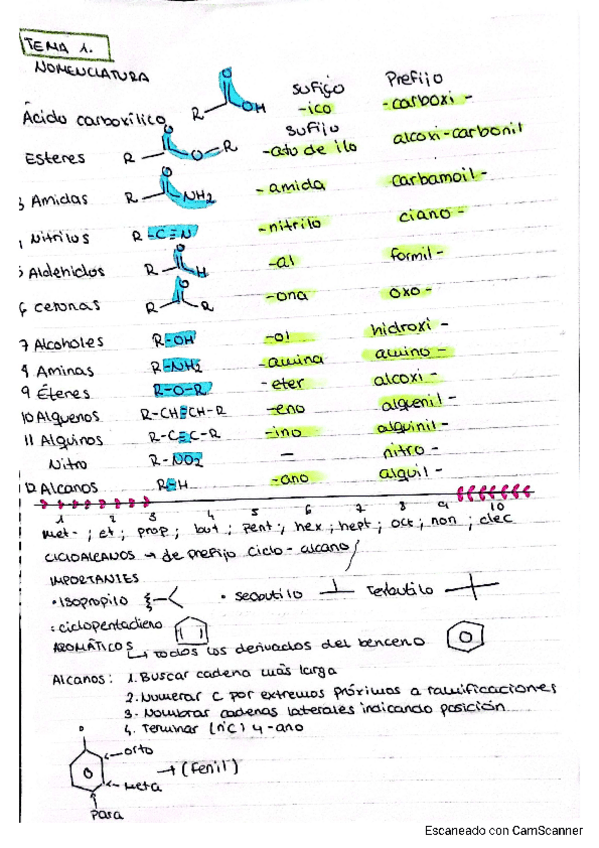 TEMA 1.
NOMENCLATURA
sufijo Prefijo
Ácido carboxílico R O OH -ico -carboxi-
sufijo
Esteres R O O-R -ato de ilo alcoxi-carbonil
3 Amidas R O NH2 -amida carbamoil-
Nitrilos R-C≡N -nitrilo ciano-
5 Aldehidos R O H -al formil-
6 cetonas R O R -ona oxo-
7 Alcoholes R-OH -ol hidroxi-
8 Aminas R-NH2 -amina amino-
9 Éteres R-O-R -eter alcoxi-
10 Alquenos R-CH=CH-R -eno alquenil-
11 Alquinos R-C≡C-R -ino alquinil-
Nitro R-NO2 — nitro-
12 Alcanos R-H -ano alquil-
1 2 3 4 5 6 7 8 9 10
met- ; et ; prop ; but ; pent ; hex ; hept ; oct ; non ; dec
CICLOALCANOS → de prefijo ciclo-alcano
IMPORTANTES
• Isopropilo • secbutilo Terbutilo
: ciclopentadieno
AROMÁTICOS
↳ todos los derivados del benceno
Alcanos: 1. Buscar cadena más larga
2. Numerar C por extremos próximos a ramificaciones
3. Nombrar cadenas laterales indicando posición
4. Terminar (nºC) y -ano
orto
→ (fenil)
Meta
Para
Escaneado con CamScanner